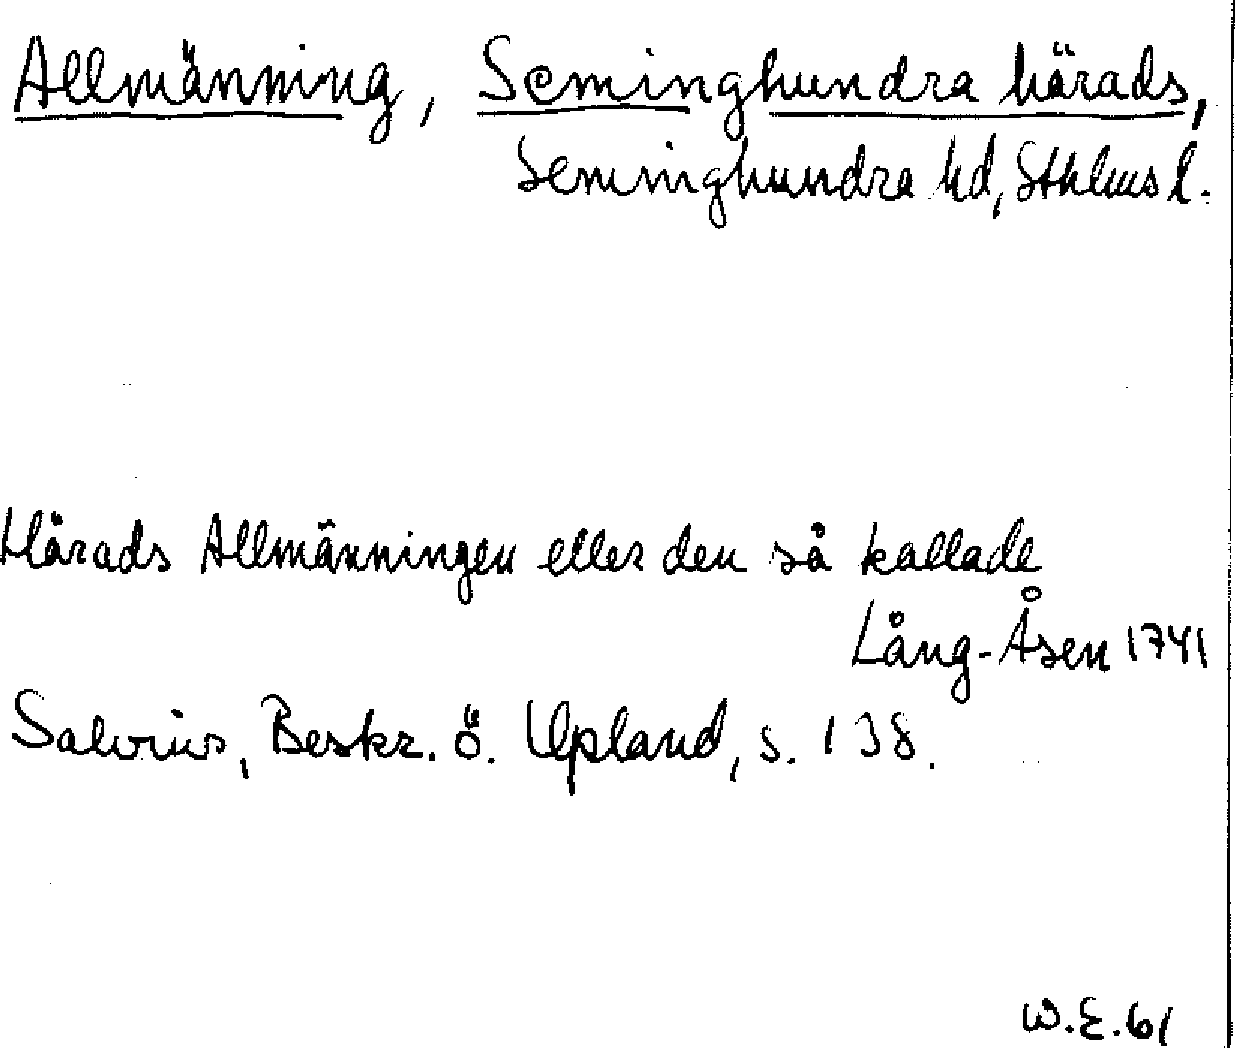 Allmänning, Seminghundra härads,
Seminghundra hd, Sthlms l.
Härads Allmänningen eller den så kallade
Lång-Åsen 1741
Salvius, Beskr. ö. Upland, s. 138.
W.E.61